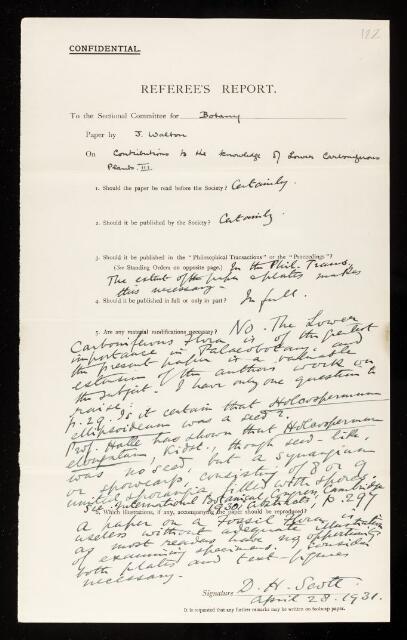 122
CONFIDENTIAL.
REFEREE'S REPORT.
To the Sectional Committee for Botany
Paper by J. Walton
On Contributions to the knowledge of Lower Carboniferous
Plants. III.
1. Should the paper be read before the Society? Certainly.
2. Should it be published by the Society? Certainly.
3. Should it be published in the "Philosophical Transactions" or the "Proceedings"?
(See Standing Orders on opposite page.) In the Phil. Trans.
The extent of the paper & plates makes
this necessary.
4. Should it be published in full or only in part? In full.
5. Are any material modifications necessary? No. The Lower
Carboniferous Flora is of the greatest
importance in Palaeobotany, and
the present paper is a valuable
extension of the author's work on
the subject. I have only one question to
raise:
p. 29. Is it certain that Holcospermum
ellipsoideum was a seed?
Prof. Halle has shown that Holcospermum
elongatum, Kidst., though seed-like,
was no seed, but a Synangium
or sporocarp, consisting of 8 or 9
united sporangia filled with spores.
See International Botanical Congress, Cambridge
1930, Abstracts, p. 297
6. Which illustrations, if any, accompanying the paper should be reproduced?
a paper on a Fossil Flora is
useless without adequate illustration
as most readers have no opportunity
of examining specimens. I consider
both plates and text figures
necessary.
Signature D. H. Scott.
April 28. 1931.
It is requested that any further remarks may be written on foolscap paper.